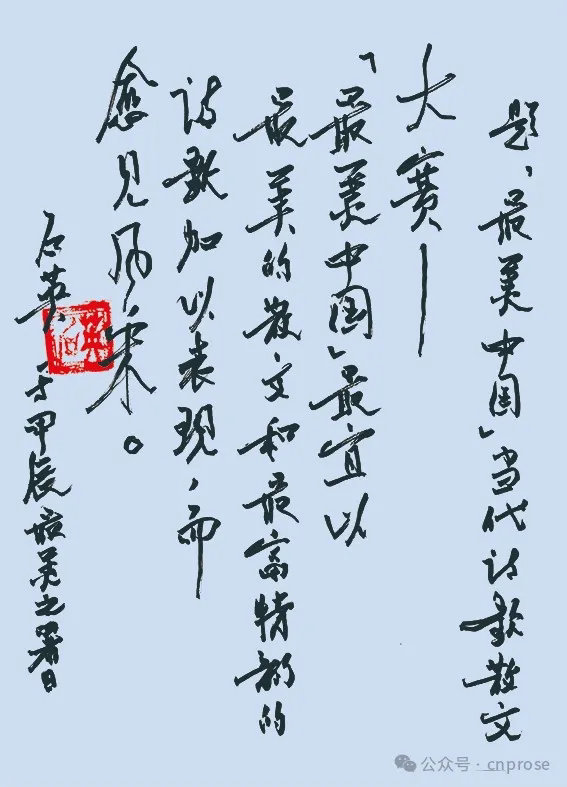 题「最美中国」当代诗歌散文
大赛——
「最美中国」最宜以
最美的散文和最富特韵的
诗歌加以表现，而
愈见风采。
石英于甲辰最美之暑日
公众号 · cnprose